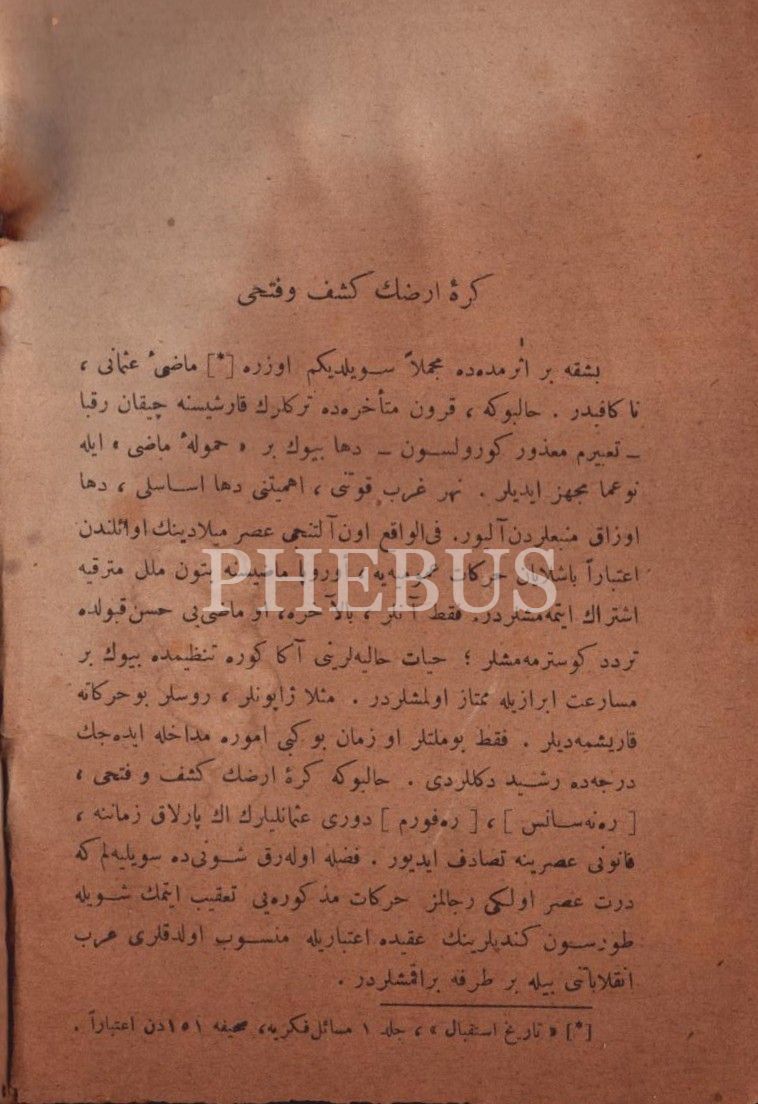 كرهٔ ارضك كشف وفتحى
بشقه بر اثرمده‌ده مجملاً سويلديكم اوزره [*] ماضىٔ عثمانى ،
نا كافيدر . حالبوكه ، قرون متأخره‌ده تركلرك قارشيسنه چيقان رقبا
ـ تعبيرم معذور كورولسون ـ دها بيوك بر « حمولهٔ ماضى » ايله
نوعما مجهز ايديلر . نهر غرب قوتنى ، اهميتنى دها اساسلى ، دها
اوزاق منبعلردن آلیور. فى‌الواقع اون‌آلتنجى عصر ميلادينك اوائلندن
اعتباراً باشلايان حركات عموميه‌يه ، اوروپا ماضيسنه بتون ملل مترقيه
PHEBUS
اشتراك ايتمه‌مشلردر. فقط آنلر ، بالآخره، او ماضى‌يى حسن قبولده
تردد كوسترمه‌مشلر ؛ حيات حاليه‌لرينى آكا كوره تنظيمده بيوك بر
مسارعت ابرازيله ممتاز اولمشلردر . مثلا ژاپونلر ، روسلر بوحركاته
قاريشمه‌ديلر . فقط بوملتلر او زمان بوكبى اموره مداخله ايده‌جك
درجه‌ده رشيد دكللردى . حالبوكه كرهٔ ارضك كشف و فتحى ،
[ ره‌نه‌سانس ] ، [ ره‌فورم ] دورى عثمانليلرك اك پارلاق زماننه ،
قانونى عصرينه تصادف ايديور . فضله اوله‌رق شونى‌ده سويليه‌لم كه
درت عصر اولكى رجالمز حركات مذكوره‌يى تعقيب ايتمك شويله
طورسون كنديلرينك عقيده اعتباريله منسوب اولدقلرى عرب
انقلاباتنى بيله بر طرفه براقمشلردر .
[*] « تاريخ استقبال » ، جلد ١ مسائل فكريه، صحيفه ١٥١دن اعتباراً .